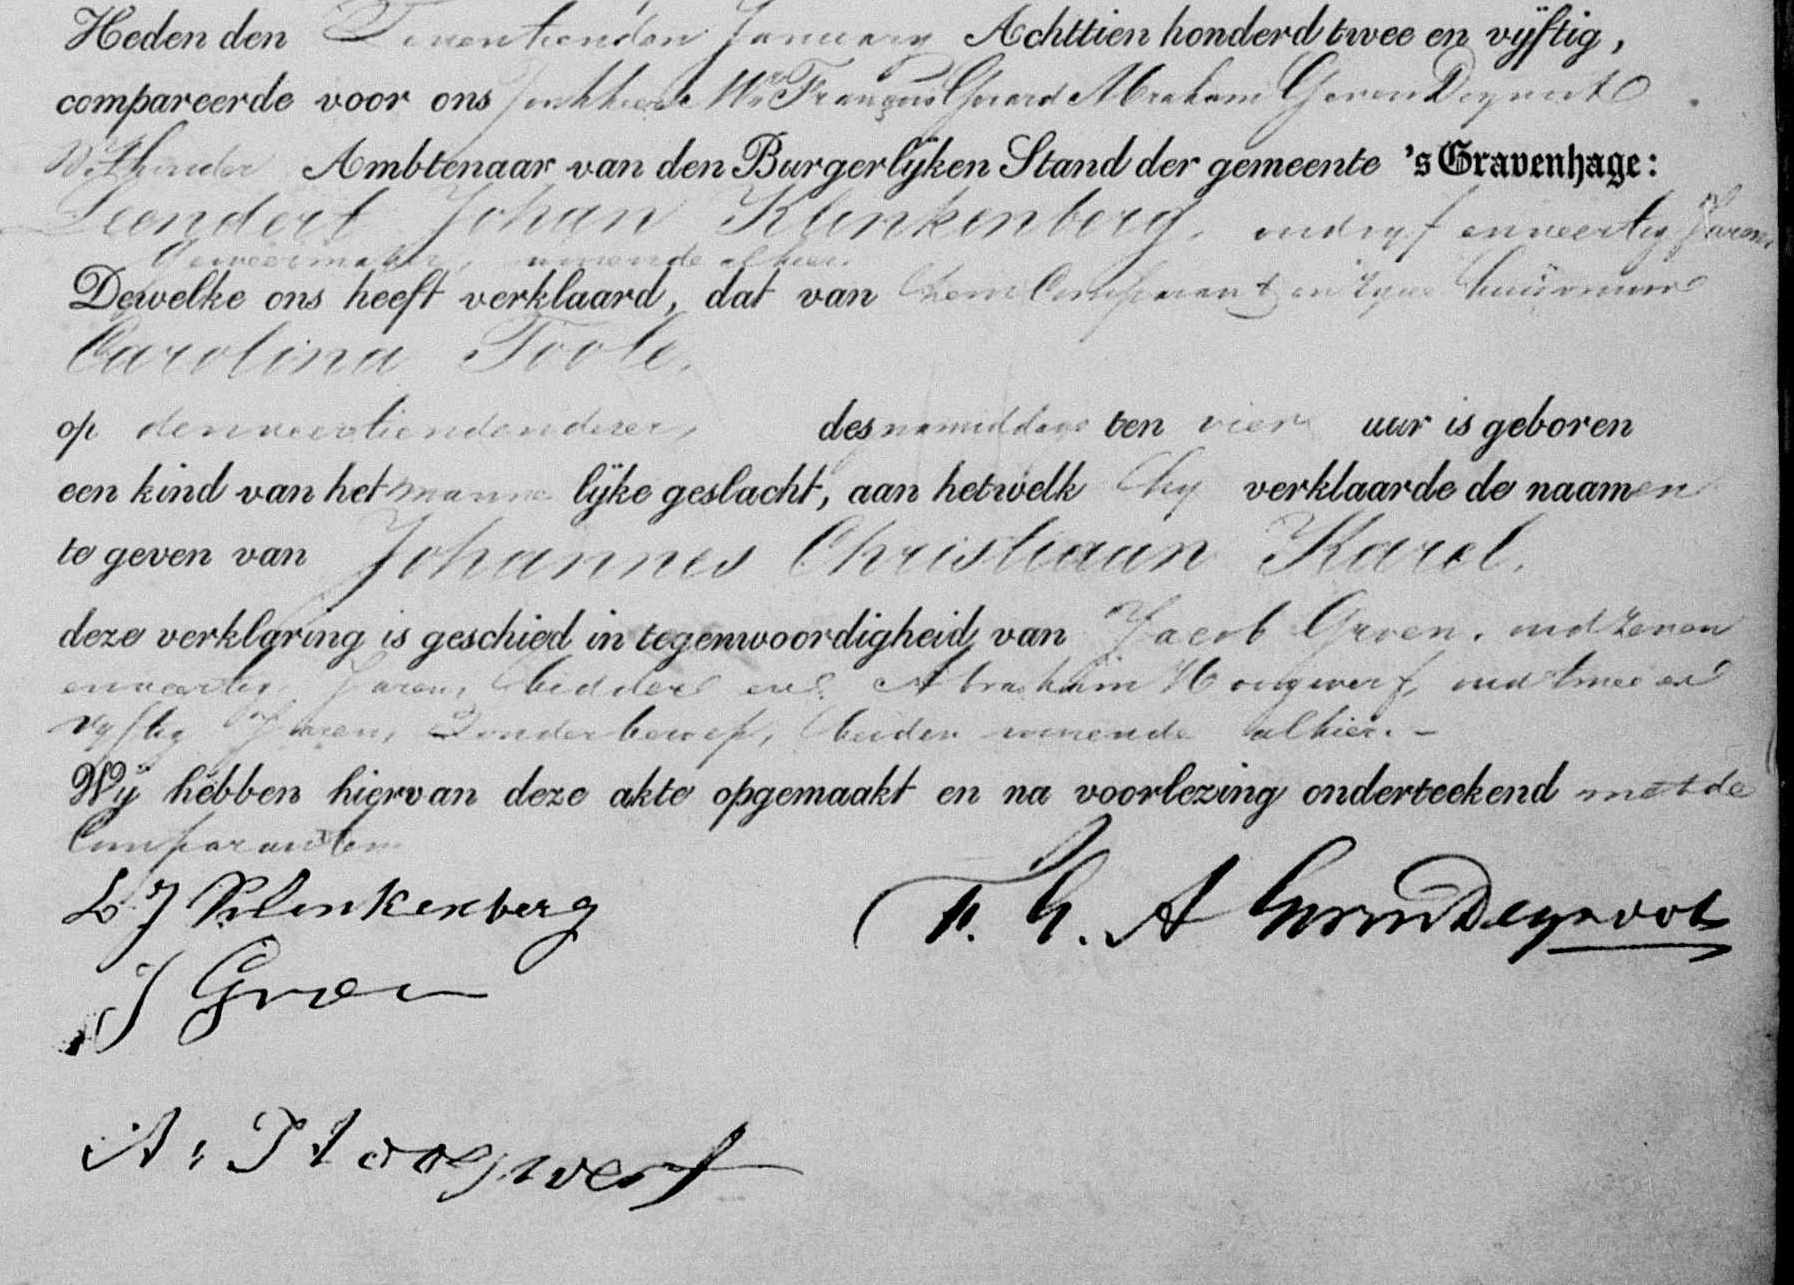 Heden den Zeventienden January Achttien honderd twee en vÿftig,
compareerde voor ons Jonkheer Mr François Gerard Abraham Gevers Deynoot
Wethouder Ambtenaar van den Burgerlÿken Stand der gemeente 's Gravenhage:
Leendert Johan Klinkenberg, oud vyf en veertig Jaren
Geweermaker, wonende alhier.
Dewelke ons heeft verklaard, dat van hem Comparant en zyne huisvrouw
Carolina Toole.
op den veertienden dezer, des namiddags ten vier uur is geboren
een kind van het manne lÿke geslacht, aan hetwelk hy verklaarde de naamen
te geven van Johannes Christiaan Karel.
deze verklaring is geschied in tegenwoordigheid van Jacob Groen, oud zeven
en veertig Jaren, bidder en Abraham Hoogwerf, oud twee en
vyftig Jaren, Zonder beroep, beiden wonende alhier. –
Wÿ hebben hiervan deze akte opgemaakt en na voorlezing onderteekend met de
Comparanten
L J Klinkenberg
F. G. A Gevers Deynoot
J Groen
A: Hoogwerf